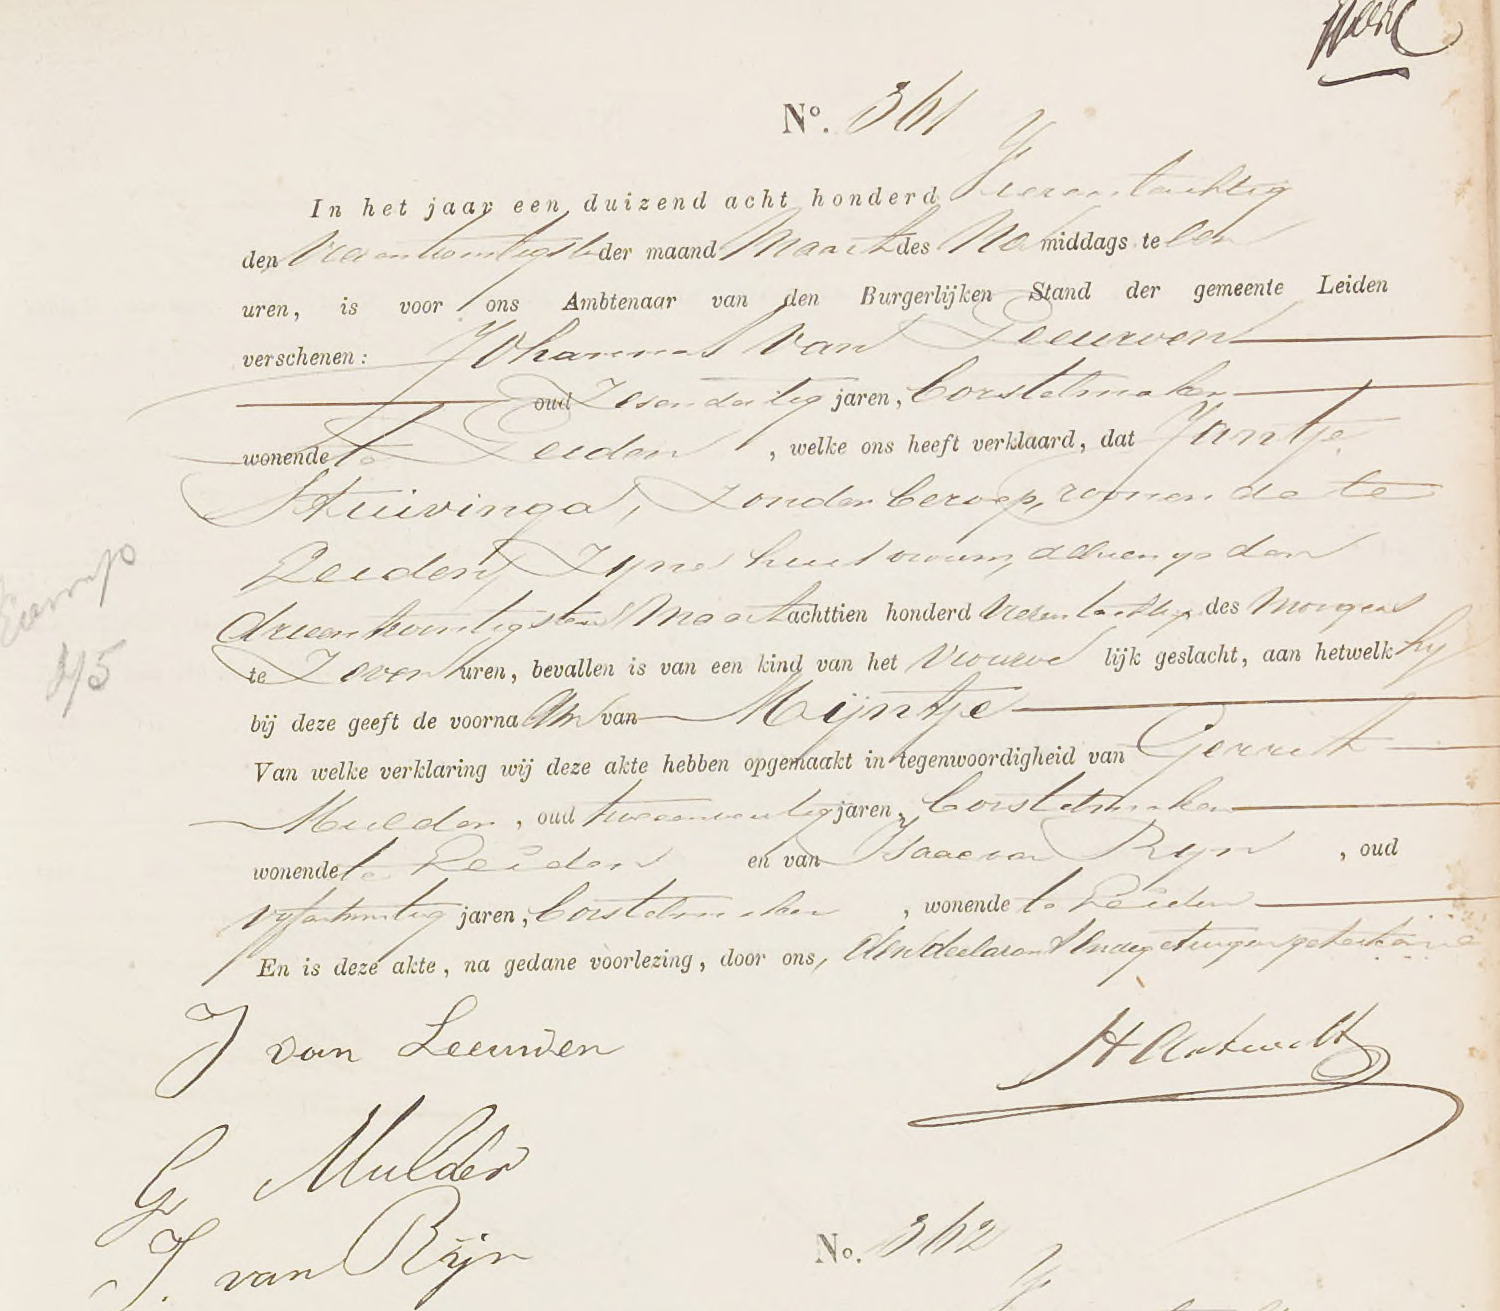 No. 361
In het jaar een duizend acht honderd Vierentachtig
den Vierentwintigsten der maand Maart des Na middags te een
uren, is voor ons Ambtenaar van den Burgerlijken Stand der gemeente Leiden
verschenen: Johannes van Leeuwen
oud Zesendertig jaren, borstelmaker
wonende te Leiden, welke ons heeft verklaard, dat Jantje
Stuivinga, Zonder beroep, wonende te
Leiden, Zijne huisvrouw, alhier op den
drieentwintigsten Maart achttien honderd Vierentachtig des Morgens
te Zeven uren, bevallen is van een kind van het Vrouwe lijk geslacht, aan hetwelk hij
bij deze geeft de voorna am van Mijntje
Van welke verklaring wij deze akte hebben opgemaakt in tegenwoordigheid van Gerrit
Mulder, oud jaren, borstelmaker
wonende te Leiden en van Isaac van Rijn, oud
vijfentwintig jaren, borstelmaker, wonende te Leiden
En is deze akte, na gedane voorlezing, door ons, den declarant en de getuigen geteekend
J van Leeuwen
G Mulder
J. van Rijn
45
No. 362